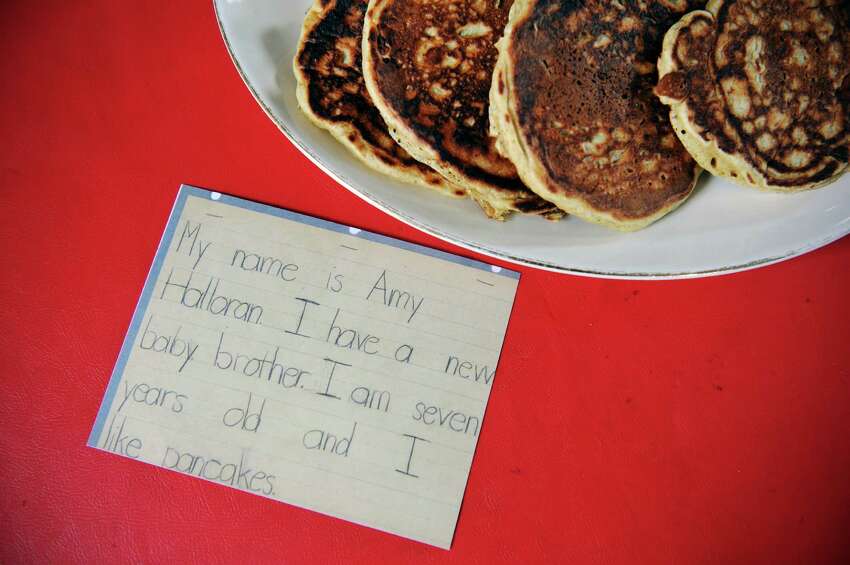 My name is Amy
Halloran. I have a new
baby brother. I am seven
years old and I
like pancakes.